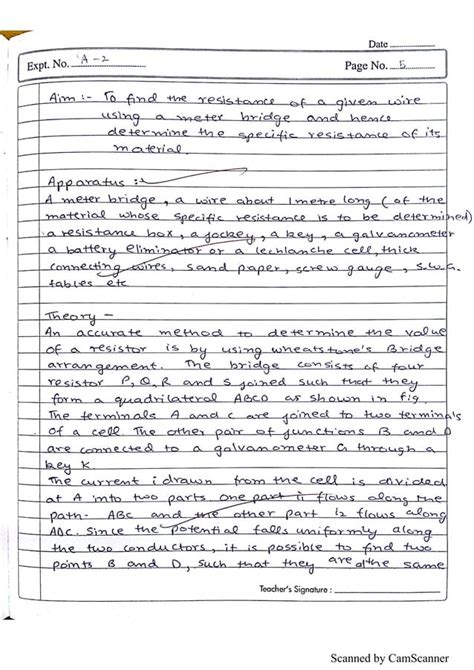 Date
Expt. No. A-2
Page No. 5
Aim :- To find the resistance of a given wire
using a meter bridge and hence
determine the specific resistance of its
material.
Apparatus :-
A meter bridge, a wire about 1metre long (of the
material whose specific resistance is to be determined)
a resistance box, a jockey, a key, a galvanometer
a battery eliminator or a lechlanche cell, thick
connecting wires, sand paper, screw gauge, S.W.G.
tables etc
Theory -
An accurate method to determine the value
of a resistor is by using wheatstone's Bridge
arrangement. The bridge consists of four
resistor P, Q, R and S joined such that they
form a quadrilateral ABCD as shown in fig.
The terminals A and C are joined to two terminals
of a cell. The other pair of junctions B and D
are connected to a galvanometer G through a
key K.
The current i drawn from the cell is divided
at A into two parts. One part i1 flows along the
path- ABC and the other part i2 flows along
ADC. Since the potential falls uniformly along
the two conductors, it is possible to find two
points B and D, such that they are at the same
Teacher's Signature :
Scanned by CamScanner